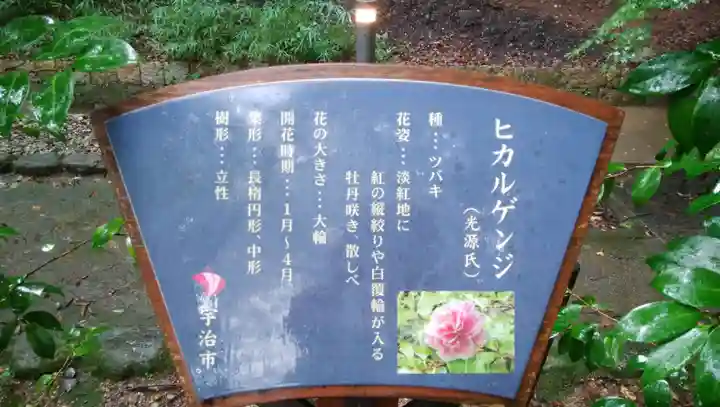 ヒカルゲンジ
（光源氏）
種…ツバキ
花姿…淡紅地に
紅の縦絞りや白覆輪が入る
牡丹咲き、散しべ
花の大きさ…大輪
開花時期…１月～４月
葉形…長楕円形、中形
樹形…立性
宇治市